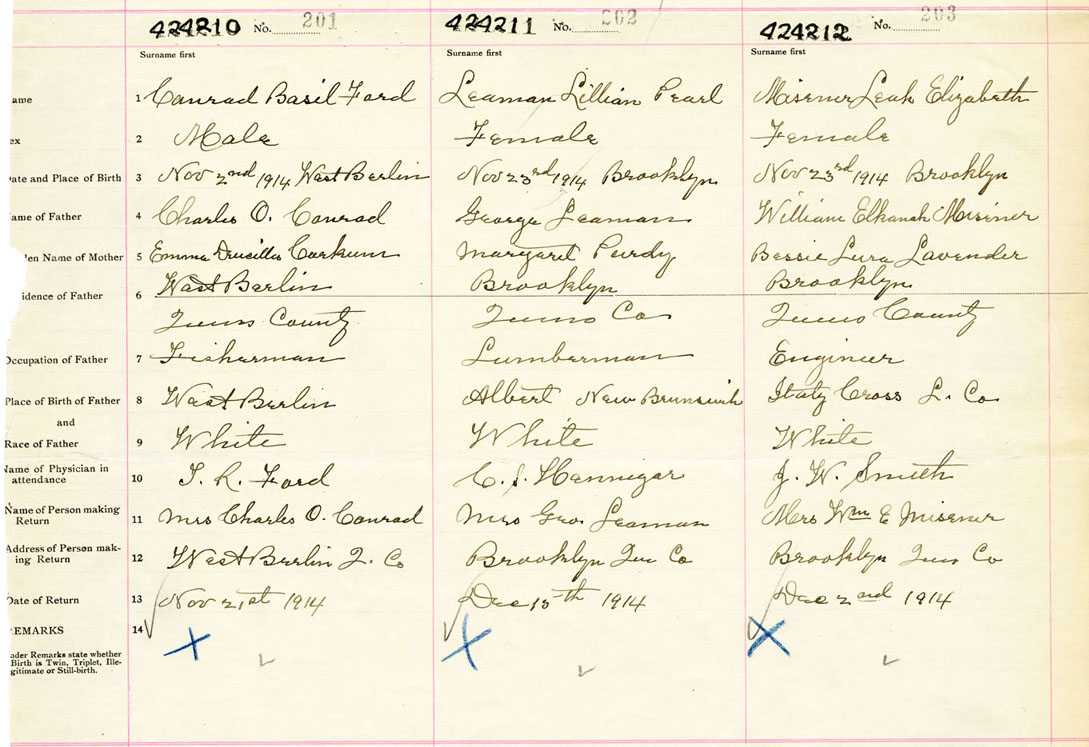 424210 No. 201 424211 No. 202 424212 No. 203
Surname first Surname first Surname first
ame 1 Conrad Basil Ford Leaman Lillian Pearl Misener Leah Elizabeth
ex 2 Male Female Female
ate and Place of Birth 3 Nov 2nd 1914 West Berlin Nov 23rd 1914 Brooklyn Nov 23rd 1914 Brooklyn
ame of Father 4 Charles O. Conrad George Leaman William Elkanah Misener
den Name of Mother 5 Emma Drucilla Corkum Margaret Purdy Bessie Lura Lavender
idence of Father 6 West Berlin Brooklyn Brooklyn
Queens County Queens Co Queens County
Occupation of Father 7 Fisherman Lumberman Engineer
Place of Birth of Father 8 West Berlin Albert New Brunswick Italy Cross L. Co
and
Race of Father 9 White White White
Name of Physician in
attendance 10 T. R. Ford C. S. Hennegar J. W. Smith
Name of Person making
Return 11 Mrs Charles O. Conrad Mrs Geo. Leaman Mrs Wm E Misener
Address of Person mak-
ing Return 12 West Berlin Q. Co Brooklyn Qu Co Brooklyn Qu Co
Date of Return 13 Nov 21st 1914 Dec 15th 1914 Dec 2nd 1914
EMARKS 14
der Remarks state whether
Birth is Twin, Triplet, Ille-
gitimate or Still-birth.